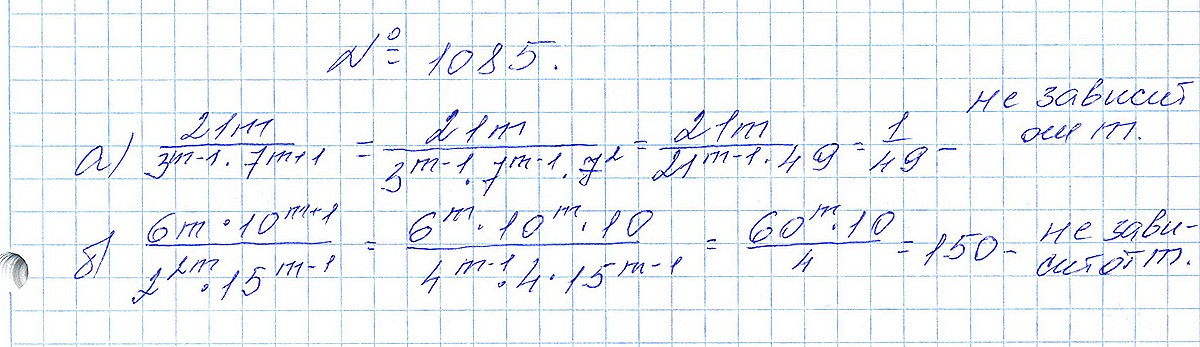 № 1085.
а) 21m / (3^(m-1) · 7^(m+1)) = 21m / (3^(m-1) · 7^(m-1) · 7^2) = 21m / (21^(m-1) · 49) = 1/49 - не зависит от m.
б) (6m · 10^(m+1)) / (2^(2m) · 15^(m-1)) = (6^m · 10^m · 10) / (4^(m-1) · 4 · 15^(m-1)) = (60^m · 10) / 4 = 150 - не зави-
сит от m.